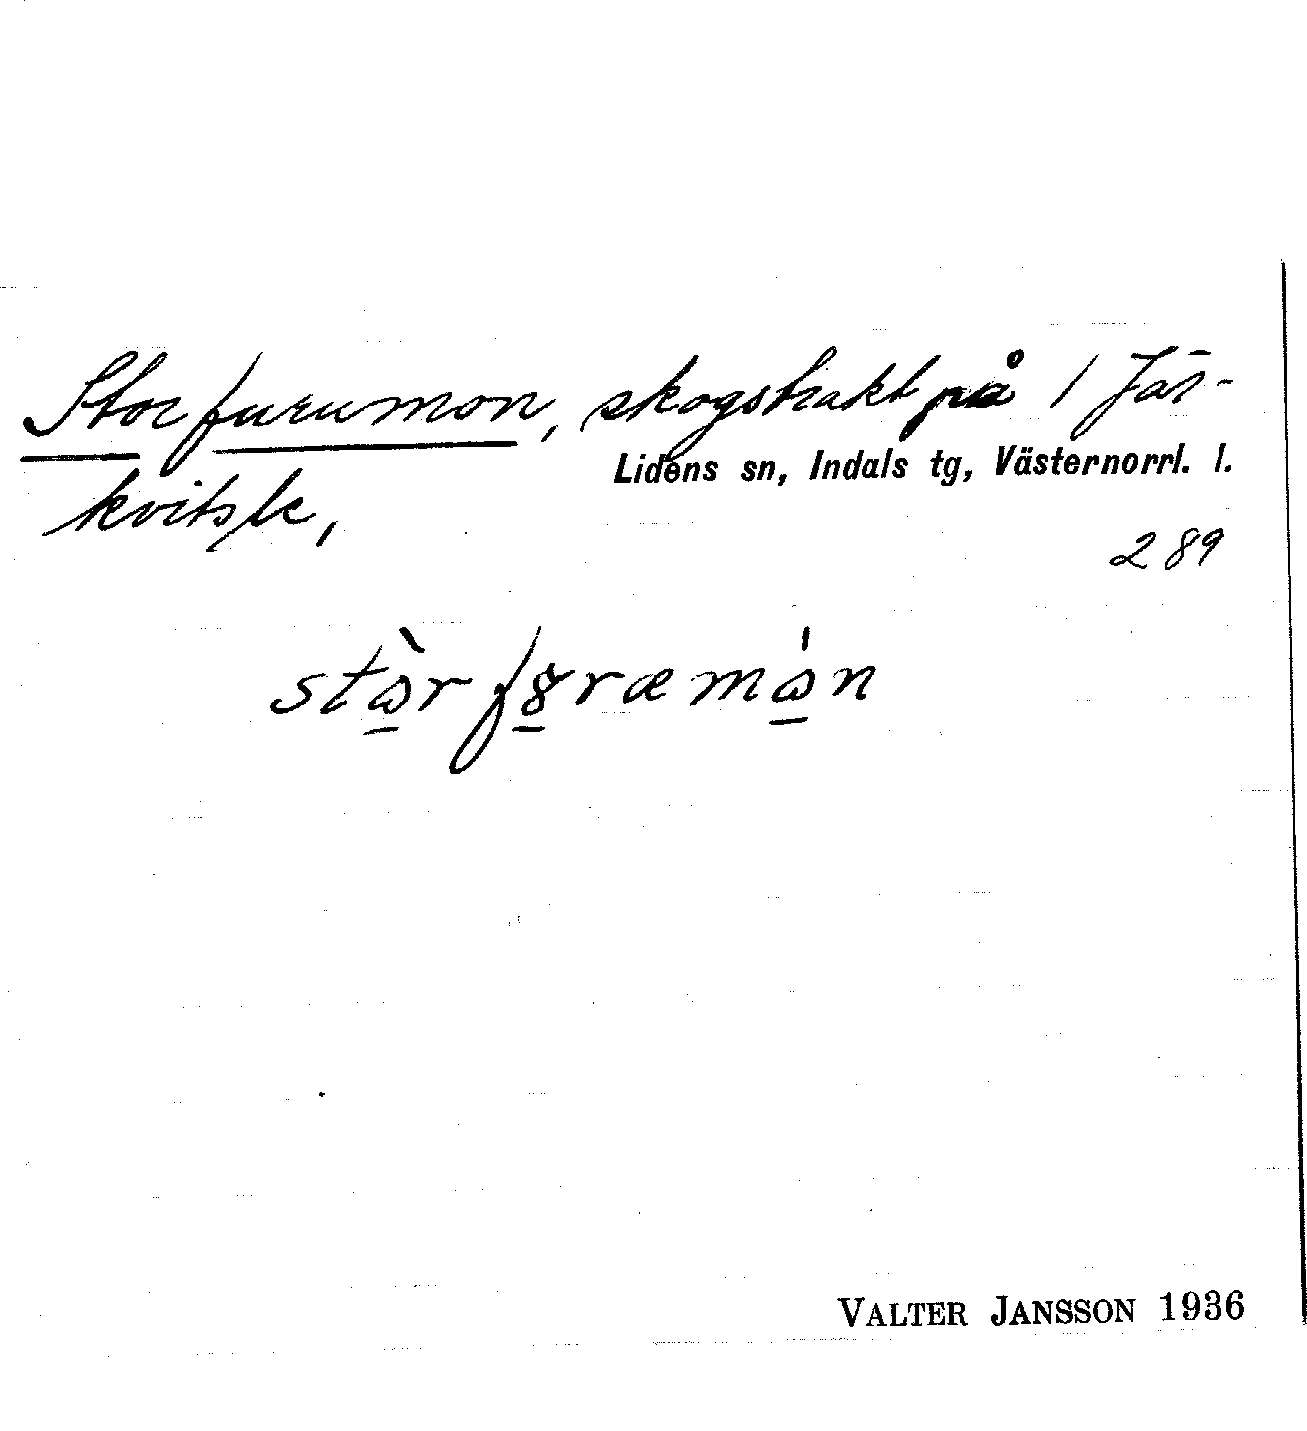 Storfurumon, skogstrakt på 1 Jär-
Lidens sn, Indals tg, Västernorrl. l.
kvitsle,
289
stɷ̀rfȣræmɷ́n
VALTER JANSSON 1936